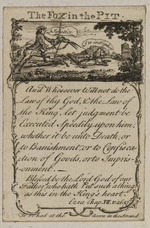 The FOX in the PIT.
And Whosoever will not do the
Law of thy God, & the Law of
the King, let judgment be
Executed Speedily upon him;
whether it be unto Death, or
to Banishment, or to Confisca-
tion of Goods, or to Impri-
onment.
Blessed be the Lord God of our
Fathers, who hath Put such a thing
as this in the King's heart.
Ezra Chap VII.
to be had at the in the Strand